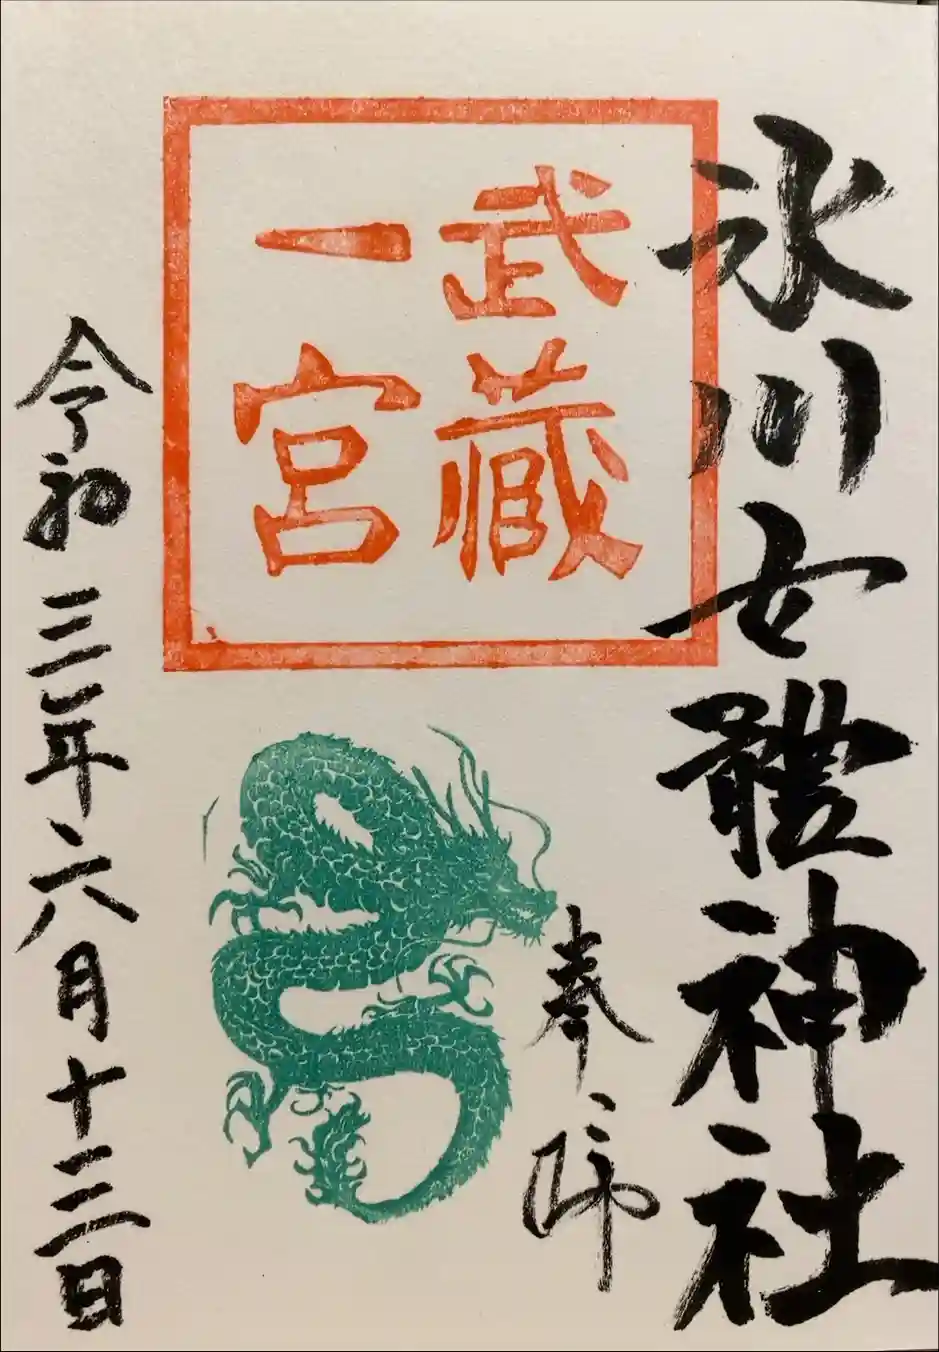 氷川女體神社
奉拝
武藏
一宮
令和三年六月十三日